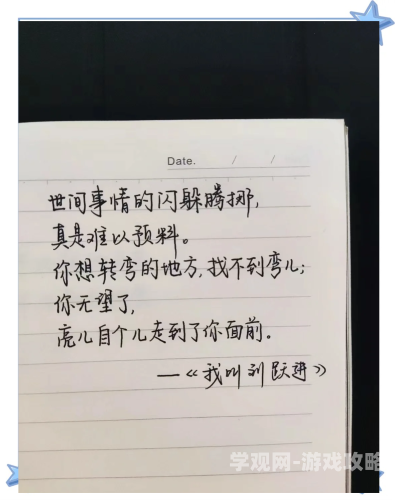 Date. / /
世间事情的闪躲腾挪,
真是难以预料。
你想转弯的地方,找不到弯儿;
你无望了,
亮儿自个儿走到了你面前。
—《我叫刘跃进》
学观网-游戏攻略